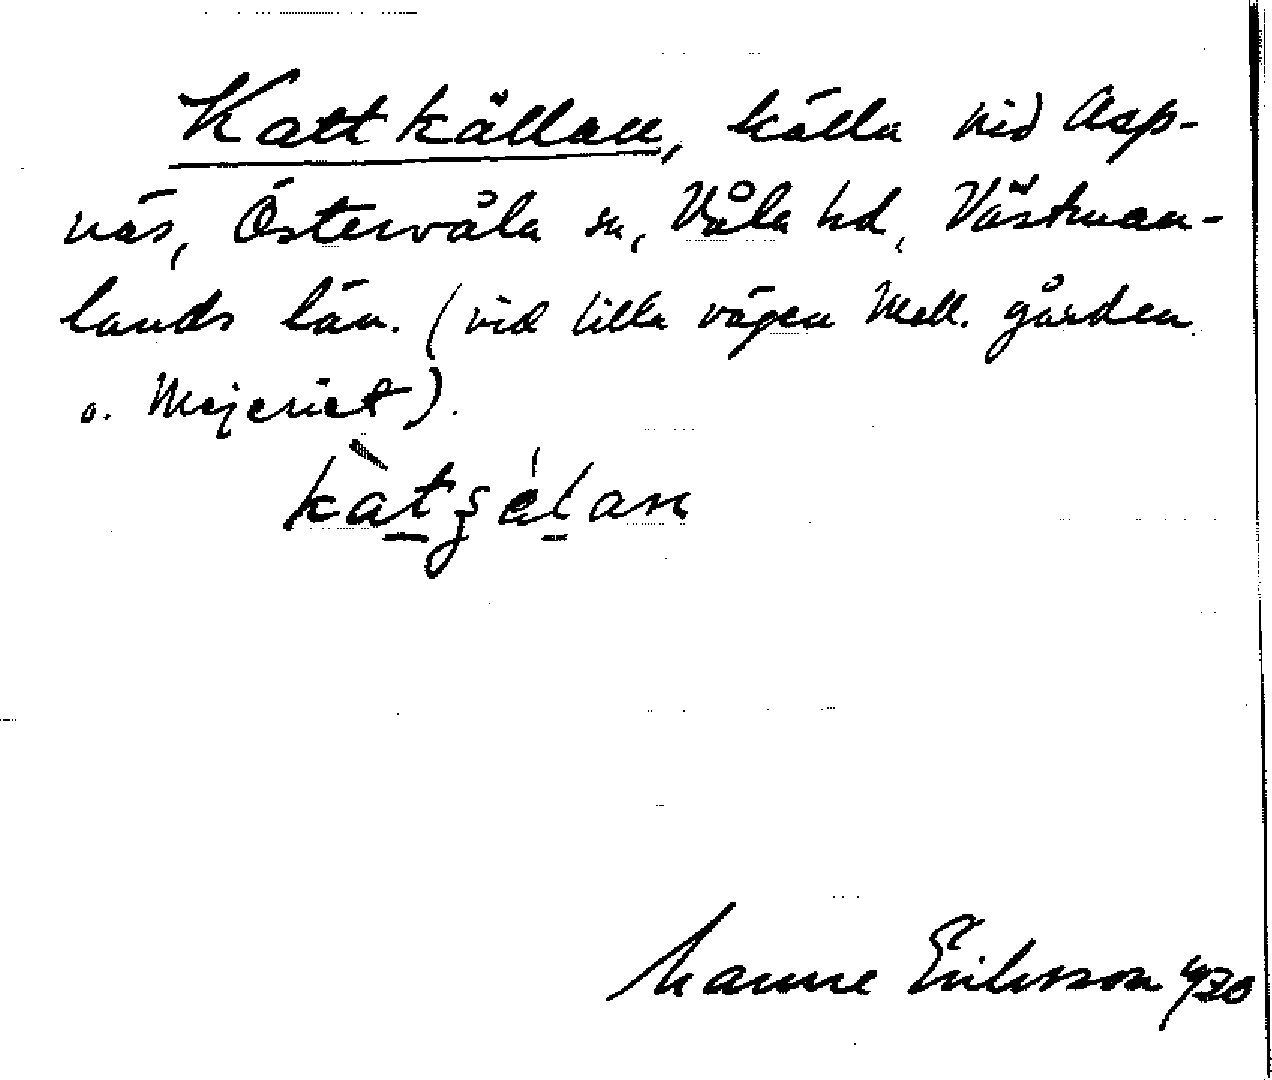 Kattkällan, källa vid Asp-
näs, Östervåla sn, Våla hd, Västman-
lands län. (vid lilla vägen mell. gården
o. Mejeriet).
Manne Eriksson